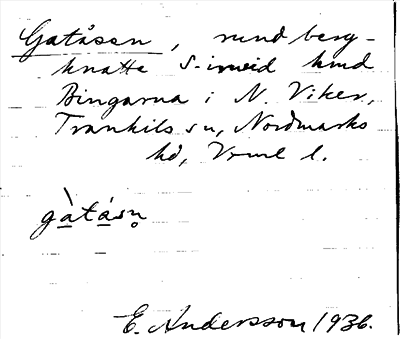 Gatåsen, rund berg-
knatte S-invid hmd
Bingarna i N. Viker,
Trankils sn, Nordmarks
hd, Vrml l.
gàtásn̥
E. Andersson 1936.